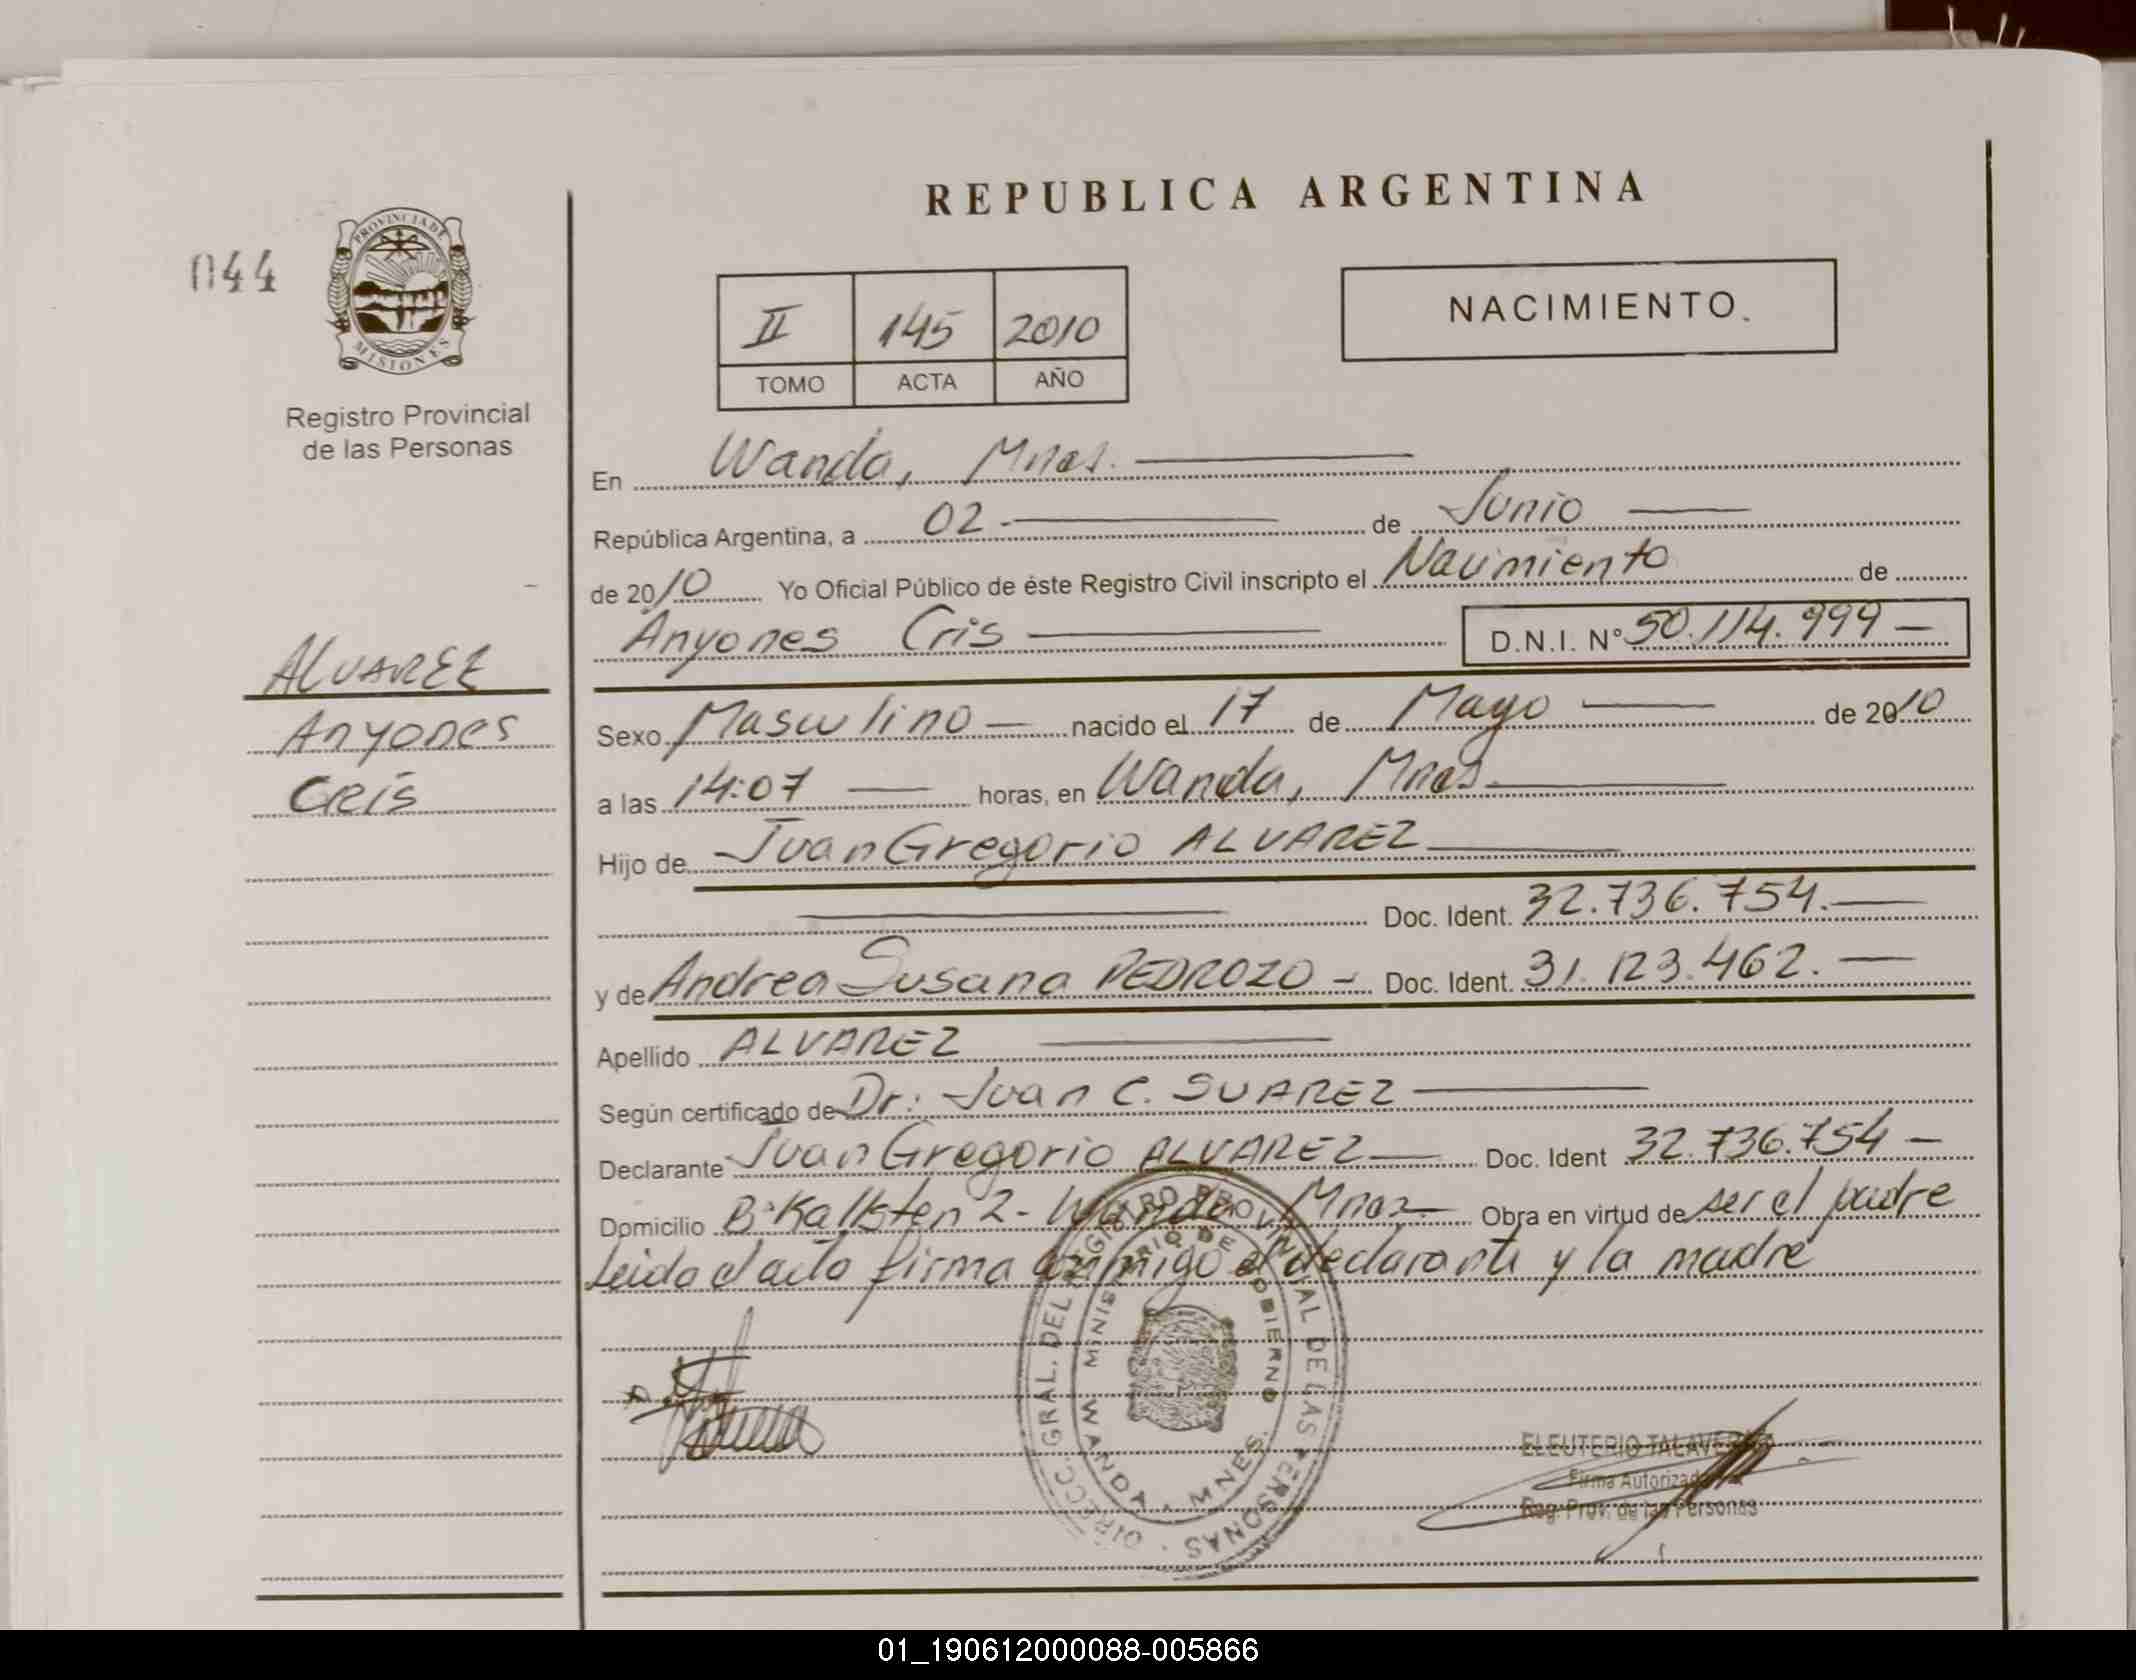 REPUBLICA ARGENTINA
044
PROVINCIA DE
MISIONES
Registro Provincial
de las Personas
II 145 2010
TOMO ACTA AÑO
NACIMIENTO.
En Wanda, Mnes.
República Argentina, a 02 de Junio
de 2010 Yo Oficial Público de éste Registro Civil inscripto el Nacimiento de
Anyones Cris D.N.I. N° 50.114.999
ALVAREZ
Anyones
Cris
Sexo Masculino nacido el 17 de Mayo de 2010
a las 14:07 horas, en Wanda, Mnes
Hijo de Juan Gregorio ALVAREZ
Doc. Ident. 32.736.754.
y de Andrea Susana PEDROZO - Doc. Ident. 31.123.462.
Apellido ALVAREZ
Según certificado de Dr: Juan C. SUAREZ
Declarante Juan Gregorio ALVAREZ Doc. Ident 32.736.754
Domicilio B: Kallsten 2 - Wanda, Mnes Obra en virtud de ser el padre
Leida el acta firma conmigo el declarante y la madre
DIRECC. GRAL. DEL REGISTRO PROVINCIAL DE LAS PERSONAS
MINISTERIO DE GOBIERNO
WANDA - MNES.
ELEUTERIO TALAVERA
Firma Autorizada
Reg. Prov. de las Personas
01_190612000088-005866